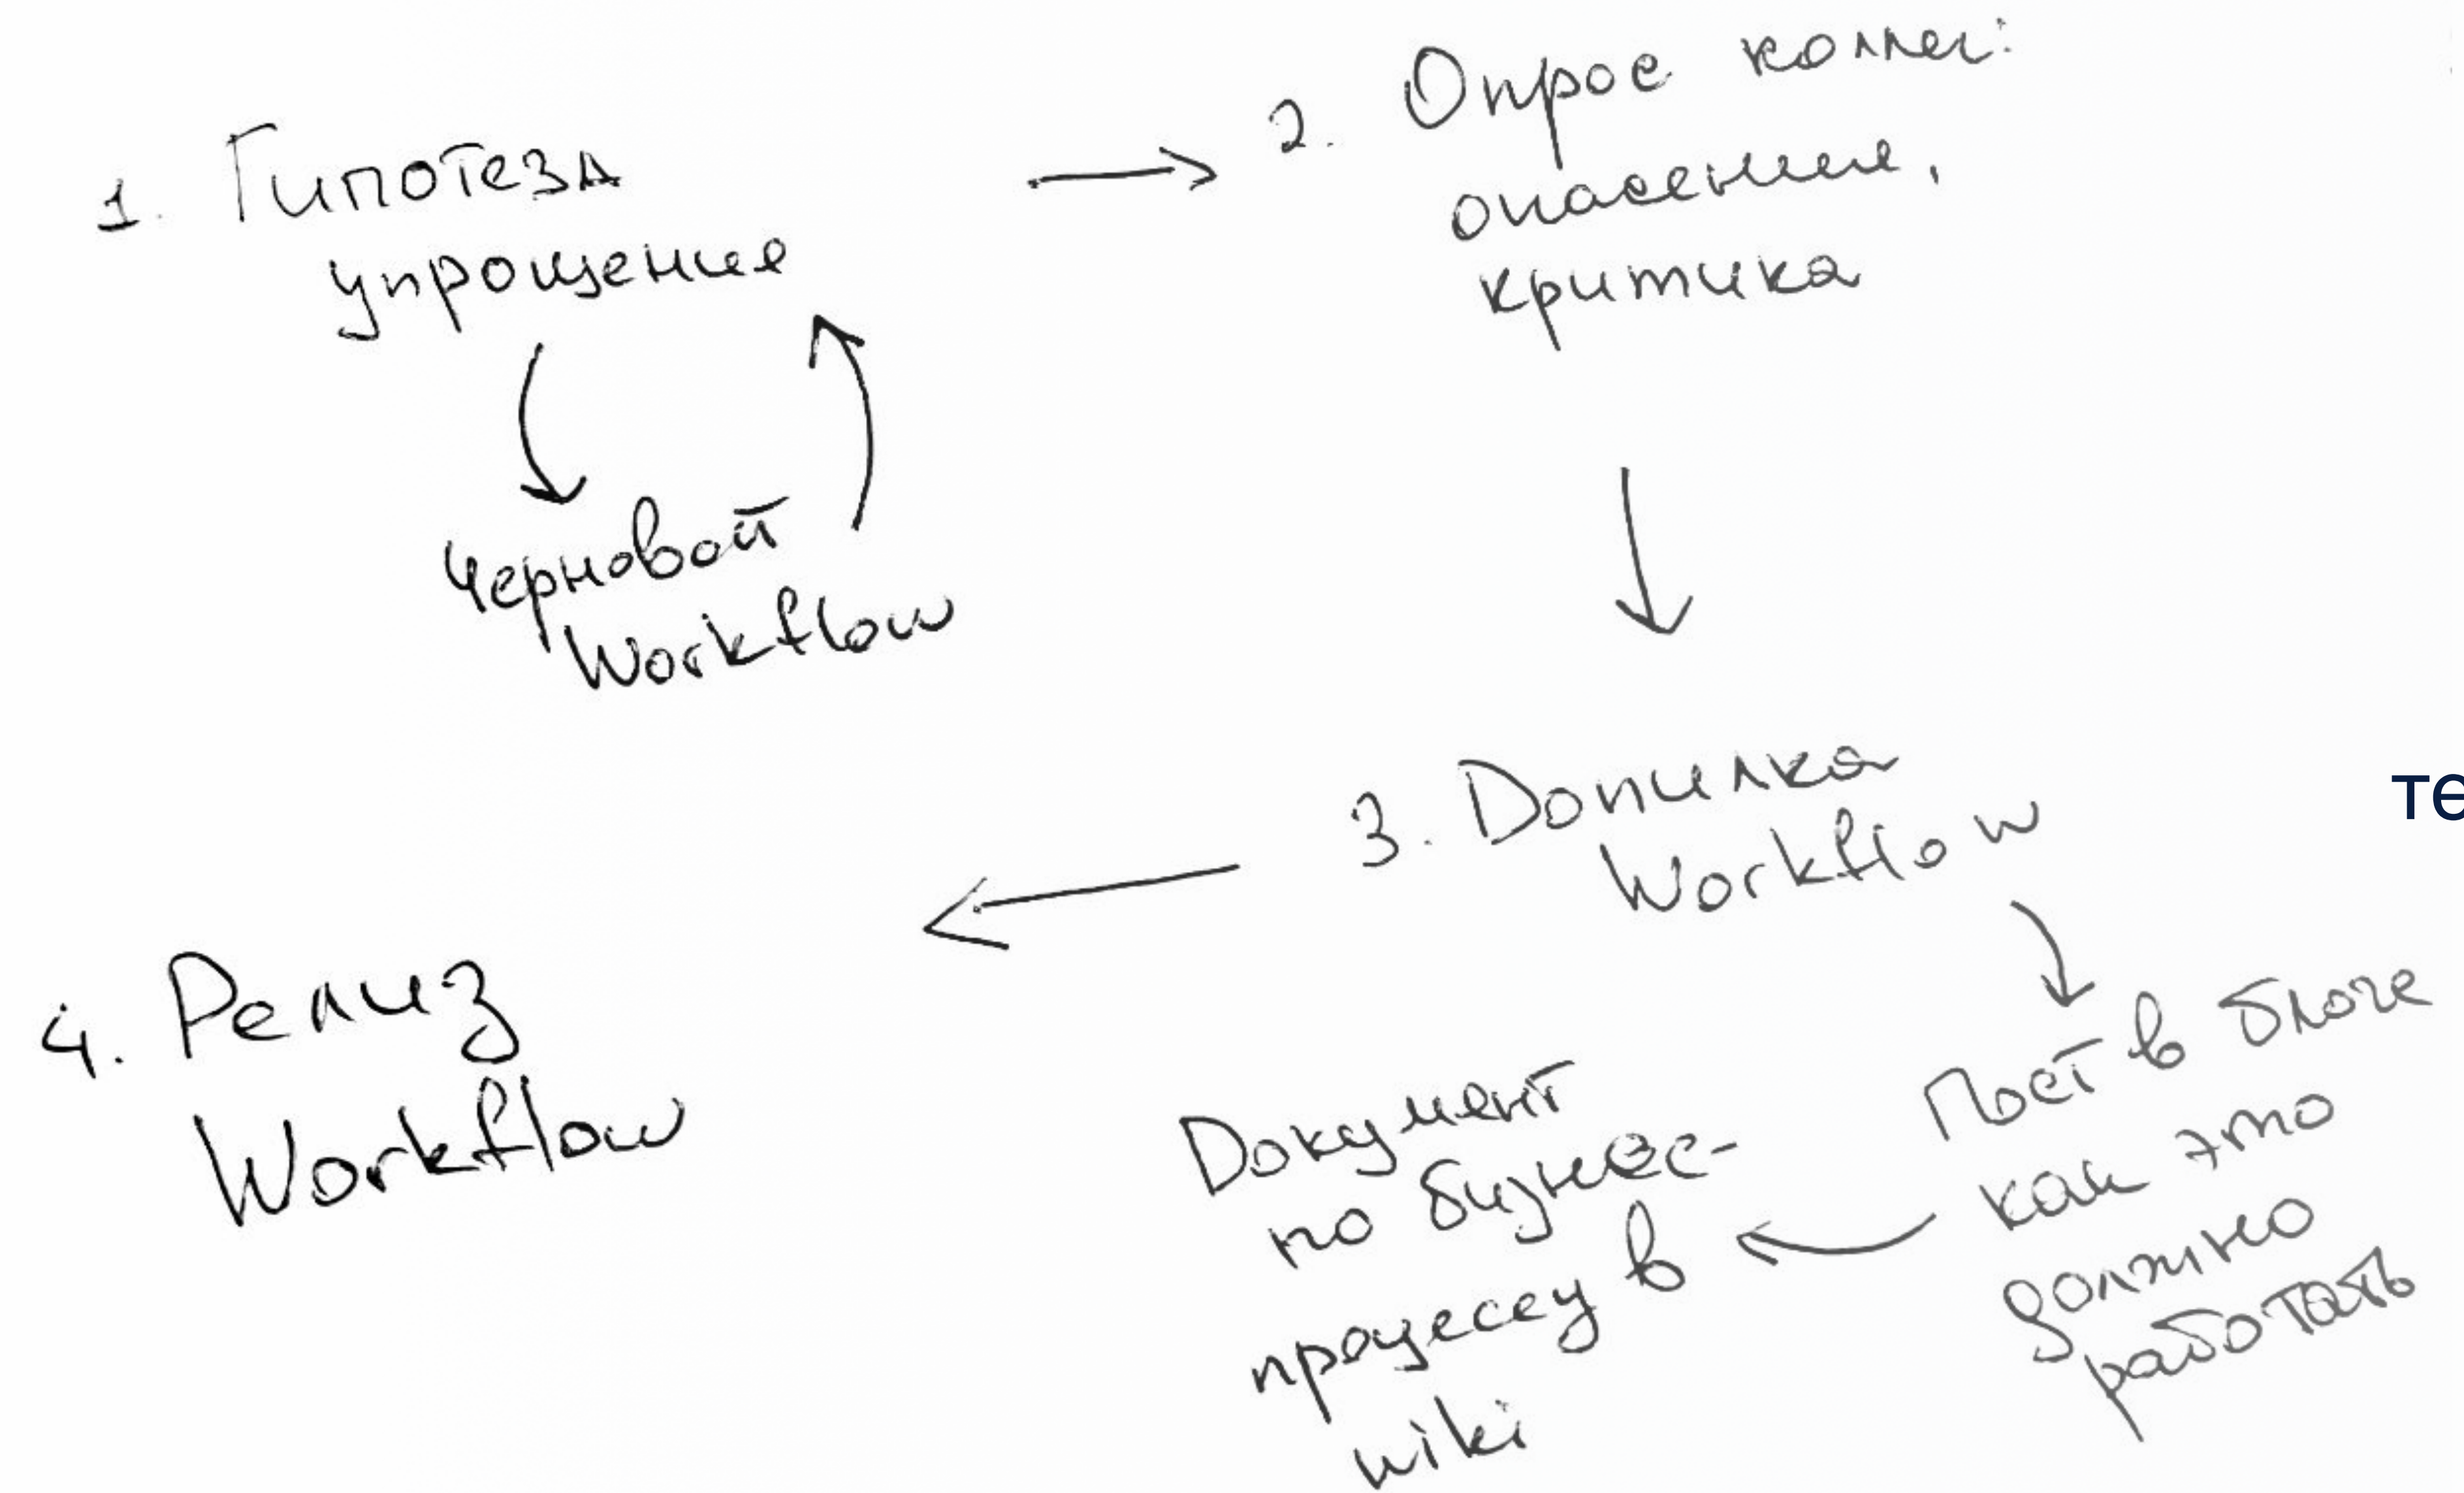 1. Гипотеза
упрощение
Черновой
Workflow
2. Опрос коллег:
опасения,
критика
3. Допилка
Workflow
те
Пост в блоге
как это
должно
работать
Документ
по бизнес-
процессу в
wiki
4. Релиз
Workflow